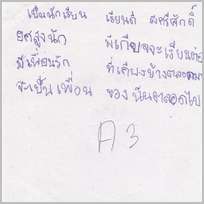 เป็นนักเรียน เรียนดี ศรีศักดิ์
ยศสูงนัก พี่เกียจจะเรียน
มีเพื่อนรัก ที่เคียงข้างตลอดมา
จะเป็นเพื่อน ของ ฉันตลอดไป
A 3